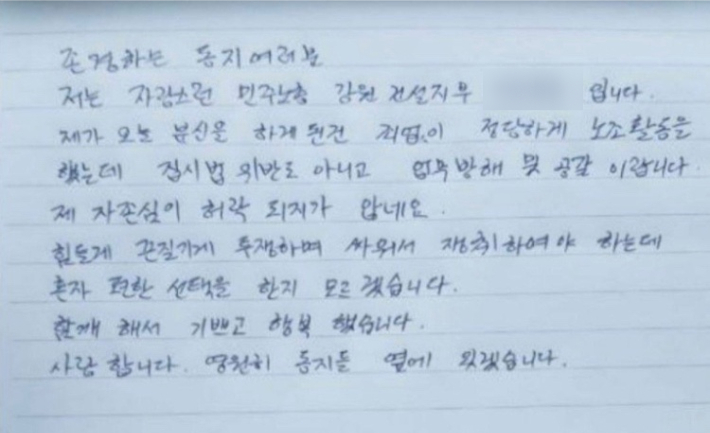 존경하는 동지여러분
저는 자랑스런 민주노총 강원 건설지부 입니다.
제가 오늘 분신을 하게된건 죄없이 정당하게 노조활동을
했는데 집시법 위반도 아니고 업무방해 및 공갈 이랍니다.
제 자존심이 허락 되지가 안네요.
힘들게 끈질기게 투쟁하며 싸워서 쟁취하여야 하는데
혼자 편한 선택을 한지 모르겠습니다.
함께 해서 기쁘고 행복 했습니다.
사랑 합니다. 영원히 동지들 옆에 있겠습니다.